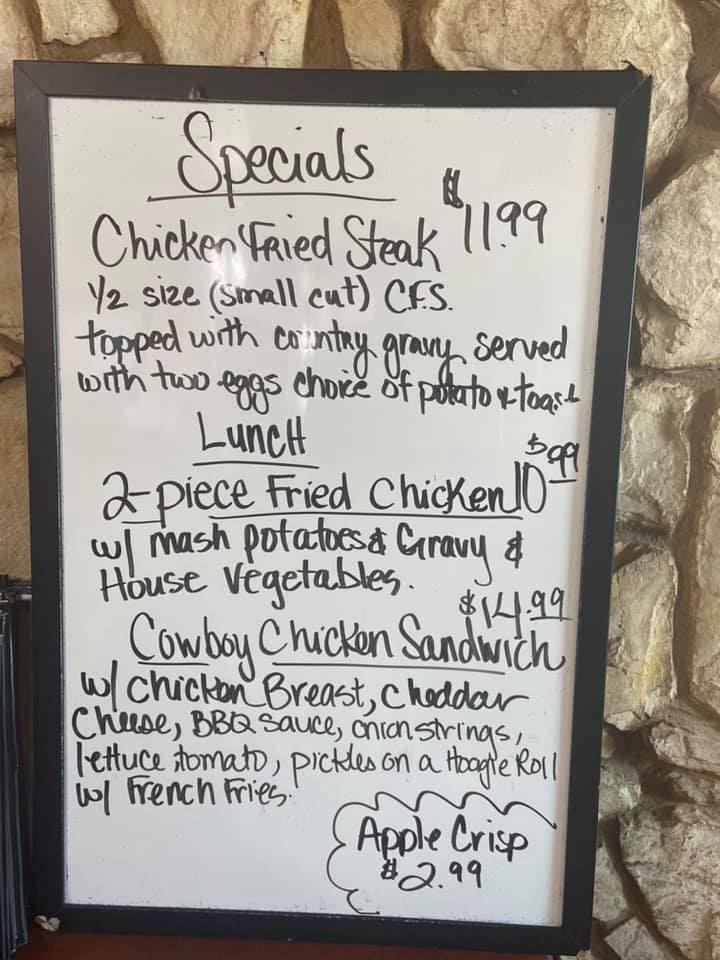 Specials
Chicken Fried Steak $11.99
1/2 size (small cut) C.F.S.
topped with country gravy served
with two eggs choice of potato & toast
Lunch
2-piece Fried Chicken $10.99
w/ mash potatoes & Gravy &
House Vegetables.
$14.99
Cowboy Chicken Sandwich
w/ Chicken Breast, cheddar
Cheese, BBQ Sauce, onion strings,
lettuce tomato, pickles on a Hoagie Roll
w/ French Fries.
Apple Crisp
$2.99